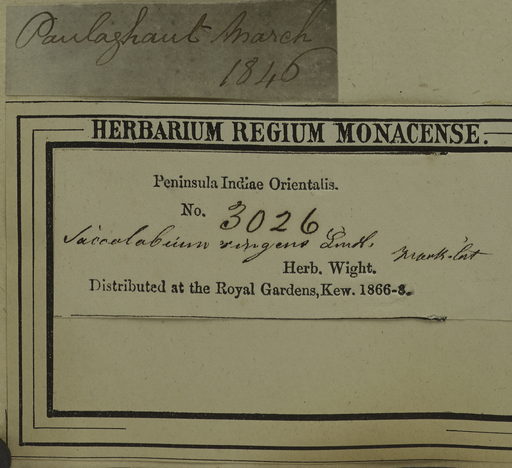 Paulaghaut March
1846
HERBARIUM REGIUM MONACENSE.
Peninsula Indiae Orientalis.
No. 3026
Saccolabium ringens Lindl.
Herb. Wight.
Distributed at the Royal Gardens, Kew. 1866-8.